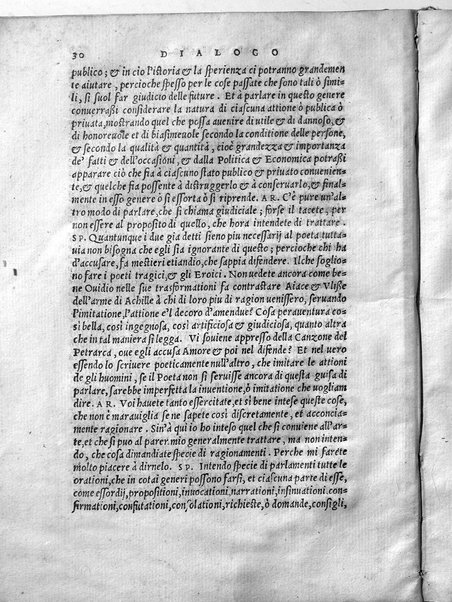 30 DIALOGO
publico; & in cio l'istoria & la sperienza ci potranno grandemen-
te aiutare, percioche spesso per le cose passate che sono tali ò simi-
li, si suol far giudicio delle future. Et à parlare in questo genere
conuerrassi considerare la natura di ciascuna attione ò publica ò
priuata, mostrando quel che possa auenire di utile & di dannoso, &
di honoreuole et di biasimeuole secondo la conditione delle persone,
& secondo la qualità & quantità, cioè grandezza & importanza
de' fatti & dell'occasioni, & dalla Politica & Economica potrassi
apparare ciò che fia à ciascuno stato publico & priuato conuenien-
te, & quelche fia possente à distruggerlo & à conseruarlo, & final-
mente in esso genere ò si essorta ò si riprende. AR. C'è pure un'al-
tro modo di parlare, che si chiama giudiciale; forse il tacete, per
non essere al proposito di quello, che hora intendete di trattare.
SP. Quantunque i due gia detti sieno piu necessarij al poeta tutta-
uia non bisogna che egli sia ignorante di questo; percioche chi ha
d'accusare, fa mestieri etiandio, che sappia difendere. Ilche soglio-
no fare i poeti tragici & gli Eroici. Non uedete ancora come be-
ne Ouidio nelle sue trasformationi fa contrastare Aiace & Vlisse
dell'arme di Achille à chi di loro piu di ragion uenissero, seruando
l'imitatione, l'attione e'l decoro d'amendue? Cosa perauentura co-
si bella, così ingegnosa, così artificiosa & giudiciosa, quanto altra
che in tal maniera si legga. Vi souiene appresso della Canzone del
Petrarca, oue egli accusa Amore & poi nel difende? Et nel uero
essendo lo scriuere poeticamente null'altro, che imitare le attioni
de gli huomini, se il Poeta non si seruisse ancora di questa guisa di
parlare, sarebbe imperfetta la inuentione, ò imitatione che uogliam
dire. AR. Voi hauete tanto essercitate, et si bene intese queste cose,
che non è marauiglia se ne sapete così discretamente, et acconcia-
mente ragionare. Sin'à qui io ho inteso quel che si conuiene all'ar-
te, et che si puo al parer mio generalmente trattare, ma non inten-
do, che cosa dimandiate spetie di ragionamenti. Perche mi farete
molto piacere à dirnelo. SP. Intendo specie di parlamenti tutte le
orationi, che in cotai generi possono farsi, et ciascuna parte di esse,
come essordij, propositioni, inuocationi, narrationi, insinuationi, con-
firmationi, confutationi, consolationi, richieste, ò domande, consigli,